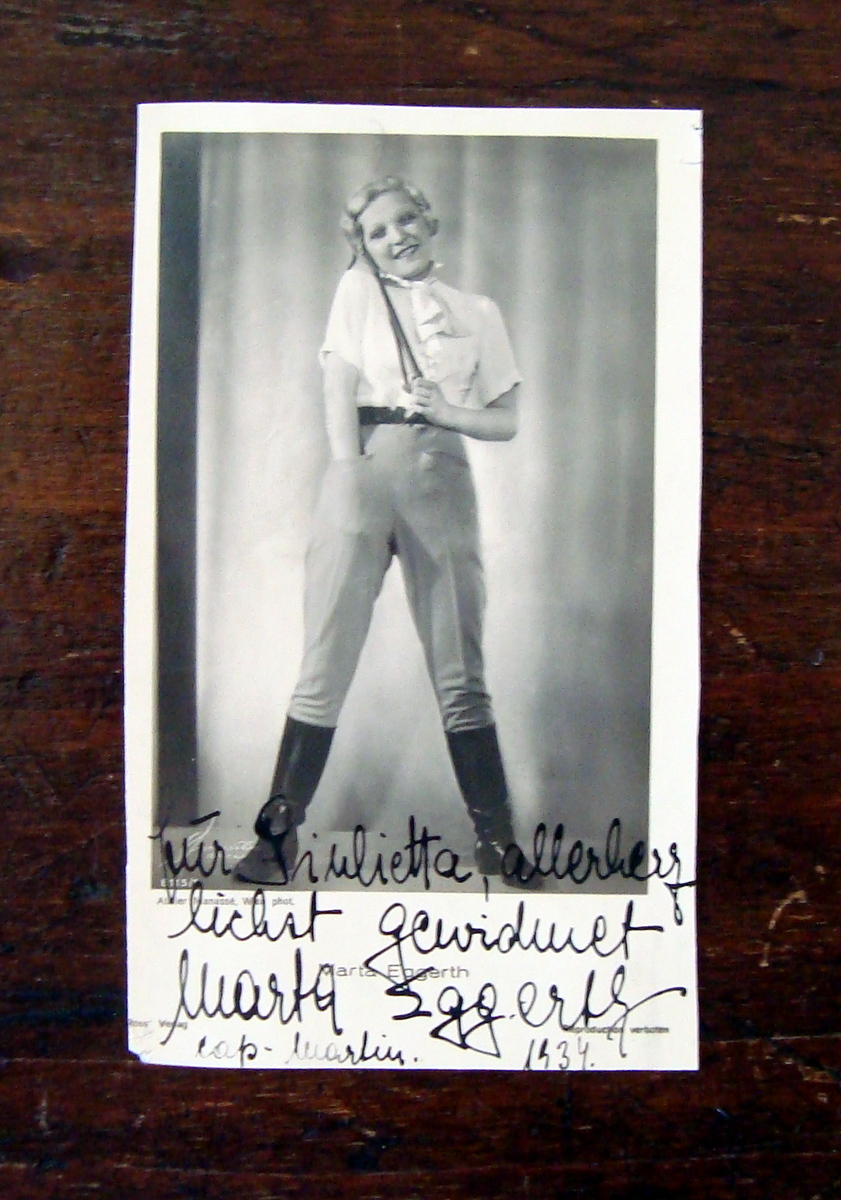 für Giulietta, allerherz
8115/
Atelier Manassé, Wien phot.
lichst gewidmet
Marta Eggerth
Marta Eggerth
"Ross" Verlag
Reproduction verboten
Cap-Martin. 1934.